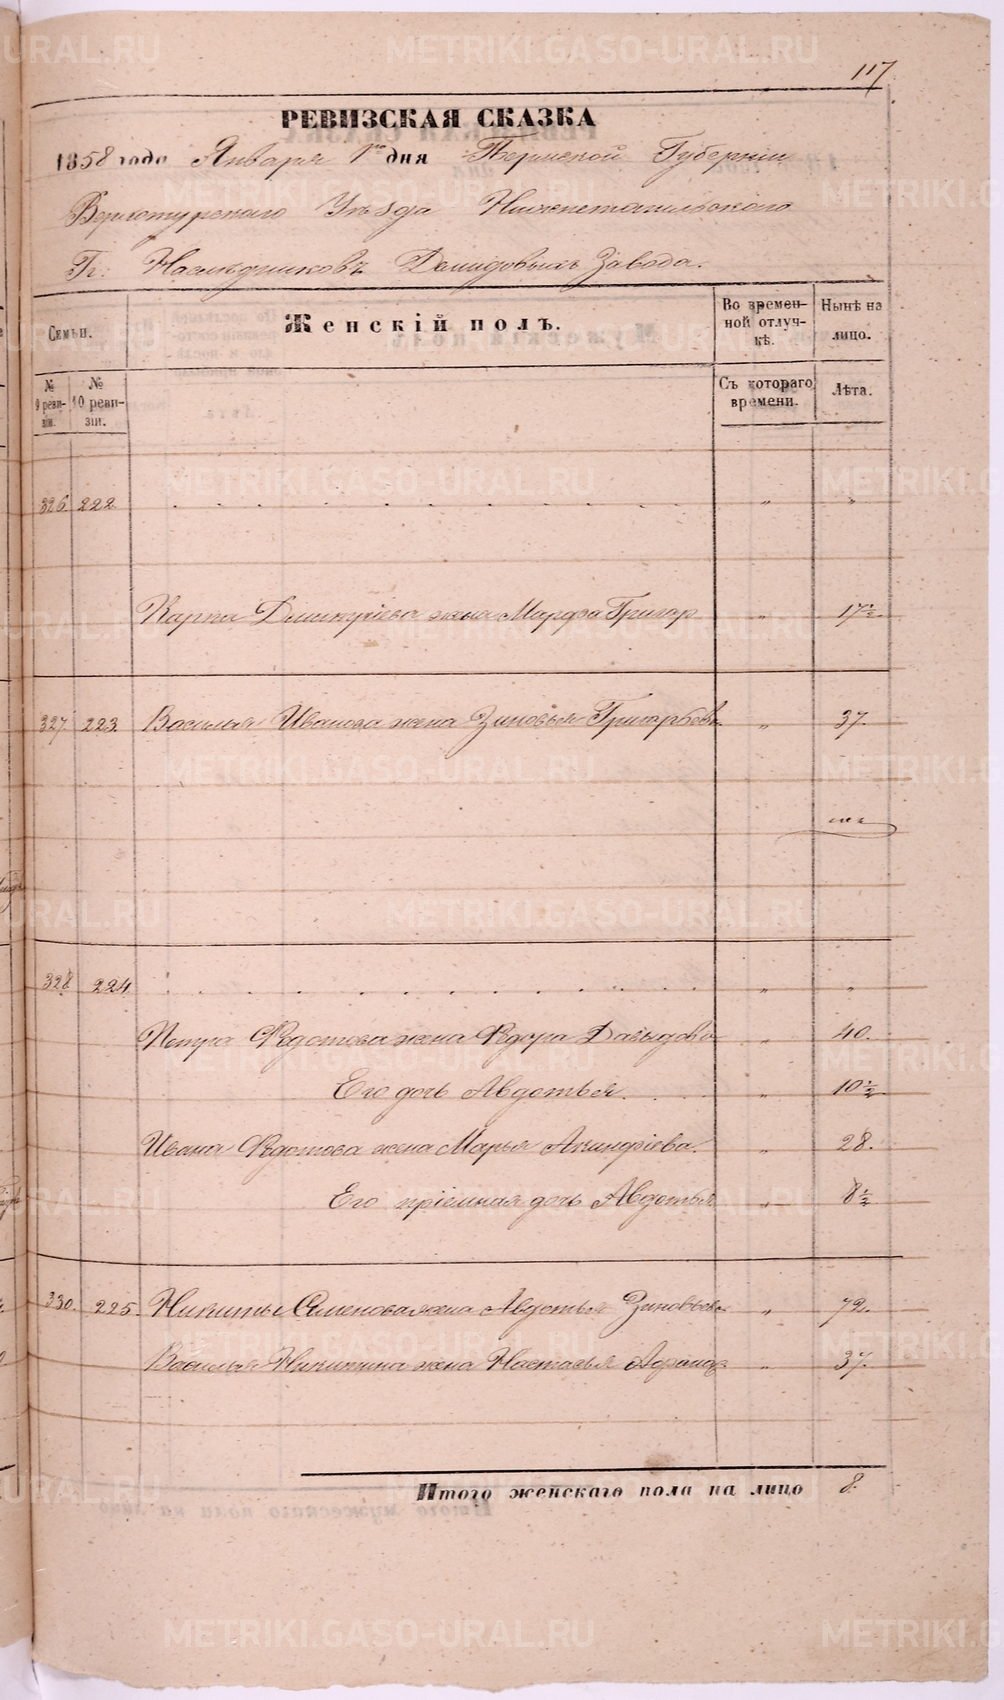 117
РЕВИЗСКАЯ СКАЗКА
1858 года Января 1го дня Пермской Губернии
Верхотурскаго Уѣзда Нижнетагильскаго
Гг: Наслѣдниковъ Демидовыхъ Завода.
Семьи.
Женскій полъ.
Во времен-
ной отлуч-
кѣ.
Нынѣ на
лицо.
№
9 реви-
зіи.
№
10 реви-
зіи.
Съ котораго
времени.
Лѣта.
326. 222. . . . . . . . . . . . . „ „
Карпа Дмитріева жена Марфа Григор „ 17½.
327. 223. Василья Иванова жена Зиновья Григорьев „ 37.
328. 224. . . . . . . . . . . . . „ „
Петра Ѳедотова жена Ѳедора Давыдова „ 40.
Его дочь Авдотья. „ 10½.
Ивана Ѳедотова жена Марья Акинфіева. „ 28.
Его пріемная дочь Авдотья „ 8½
330. 225. Никиты Семенова жена Авдотья Зиновьева „ 72.
Василья Никитина жена Настасья „ 37.
Итого женскаго пола на лицо 8.
METRIKI.GASO-URAL.RU